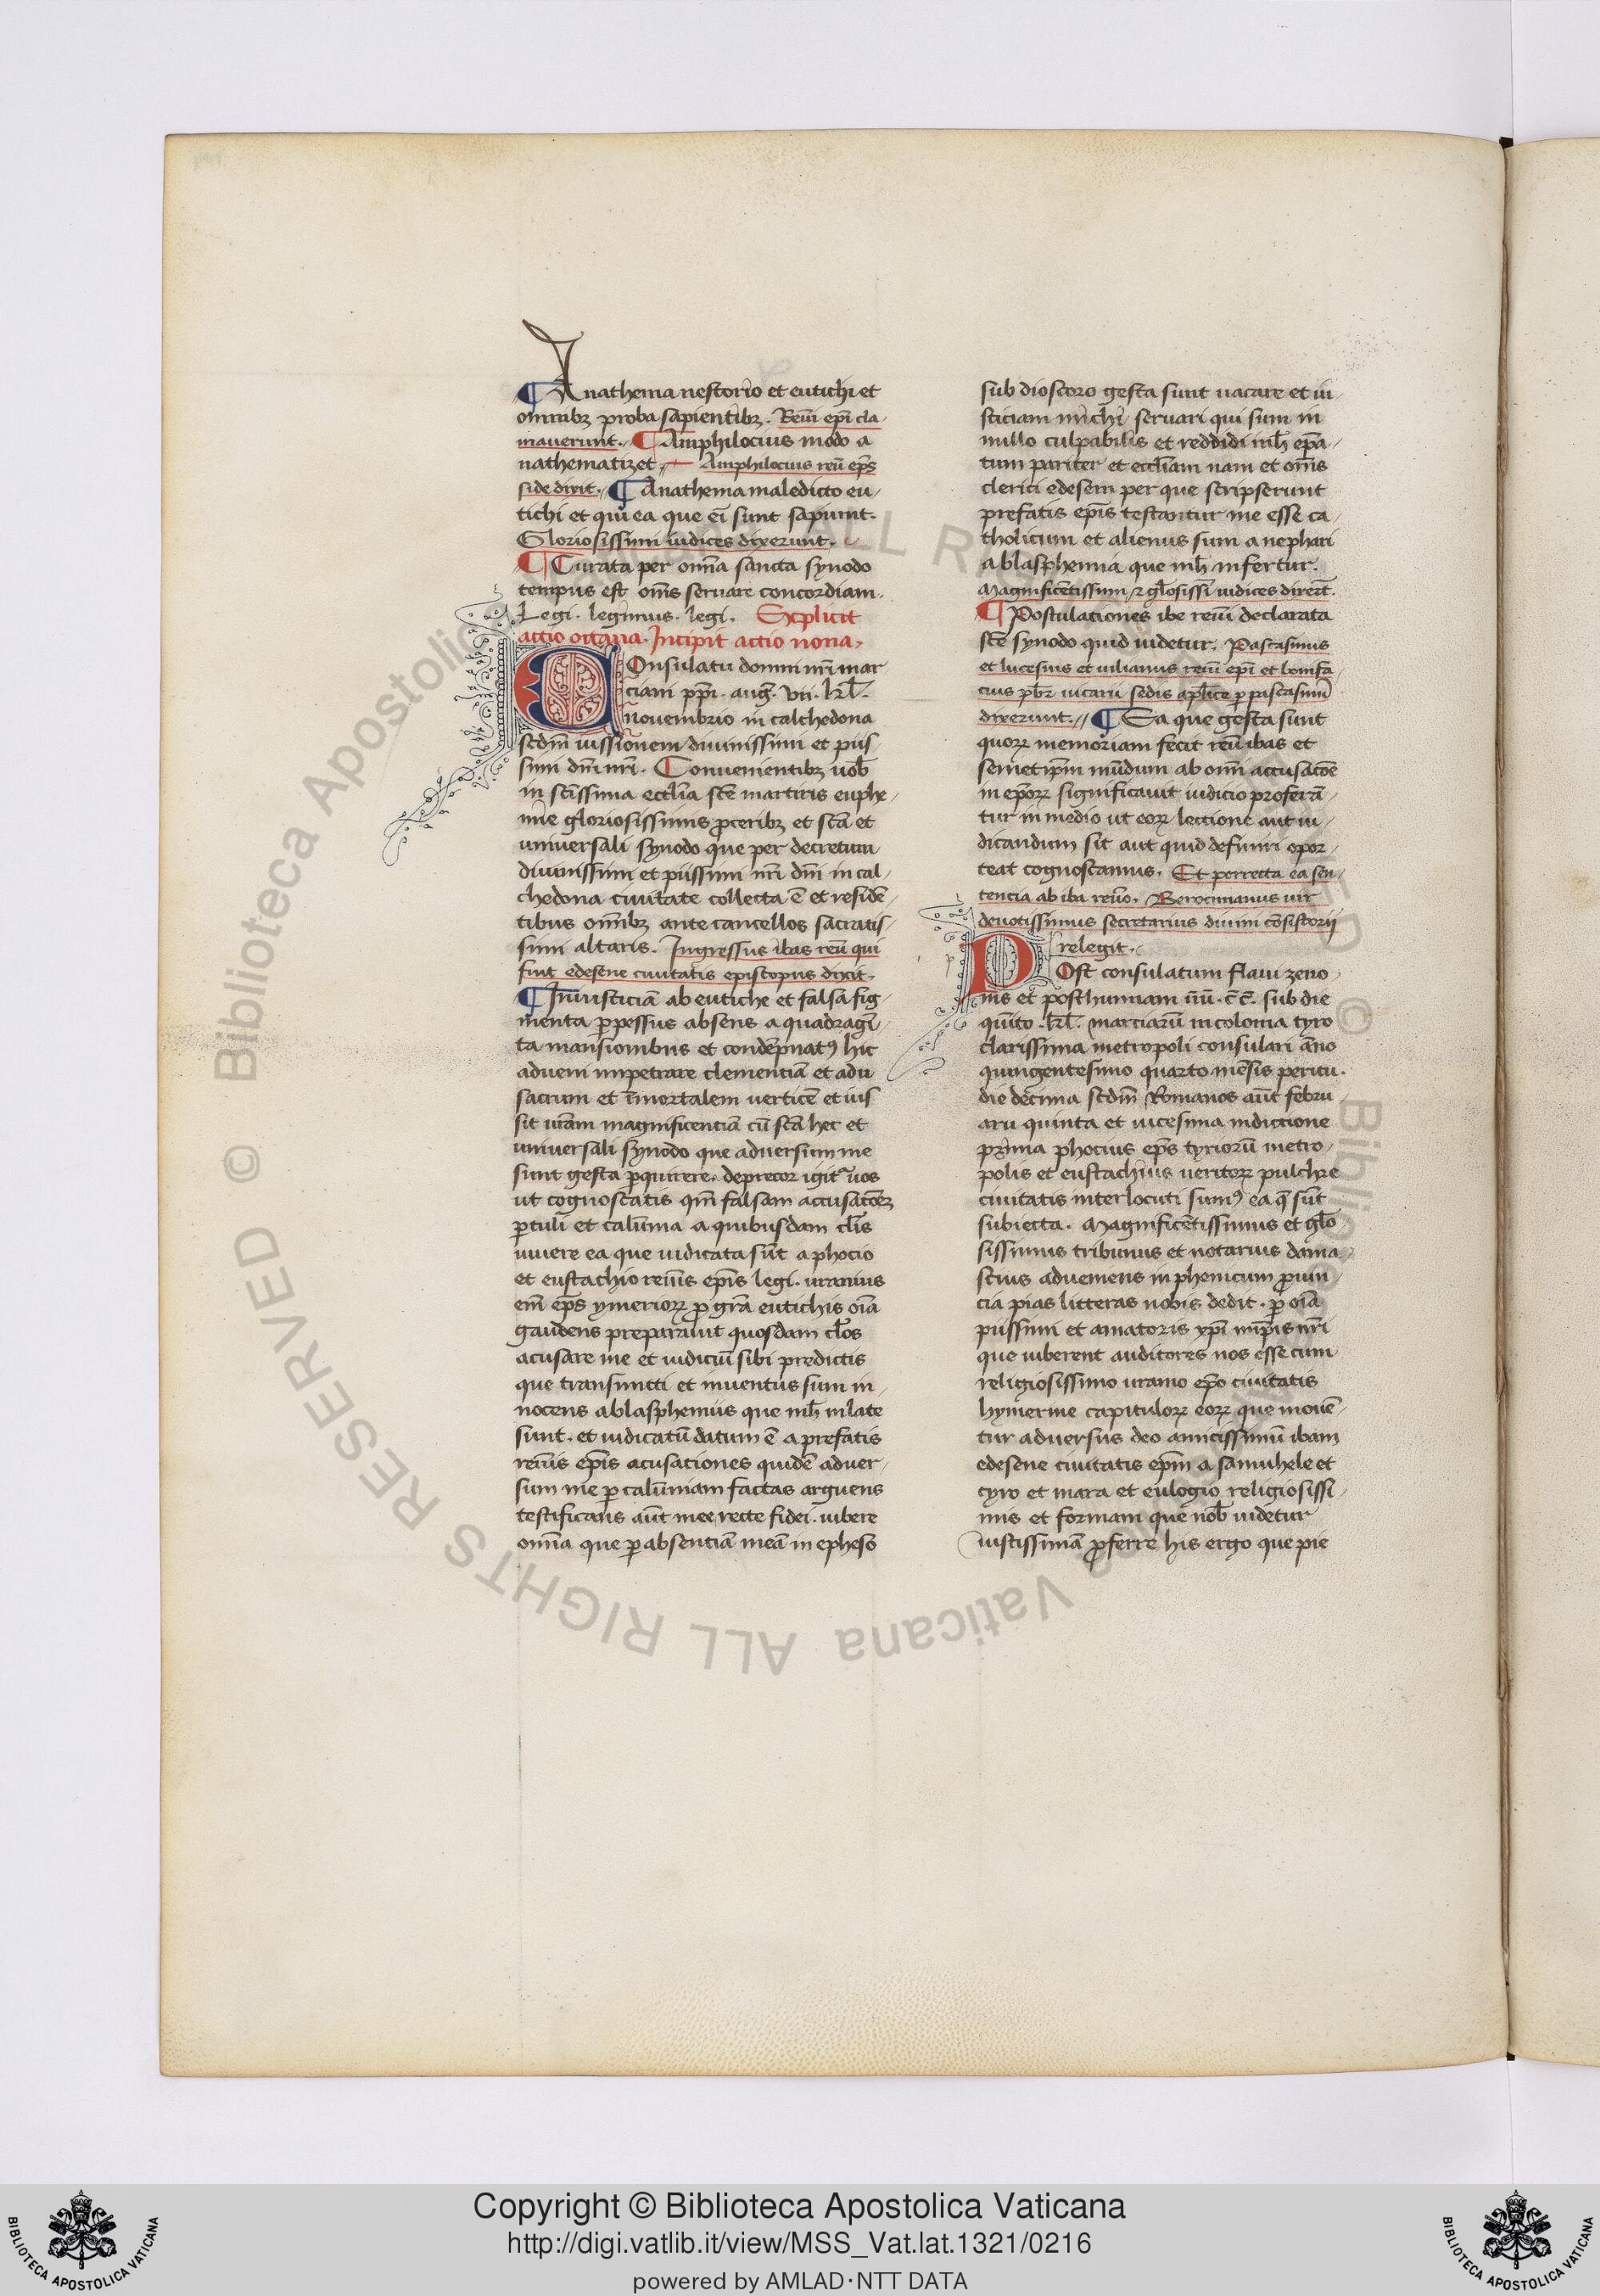 Anathema nestorio et eutichi et
omnibꝫ proba sapientibꝫ. Reuͥ epī cla-
mauerunt. ¶ Amphilocius modo a
nathematizet. Amphilocius reuͥ ep̄s
side dixit. ¶ Anathema maledicto eu-
tichi et qui ea que ei sunt sapiunt.
Gloriosissimi iudices dixerunt.
¶ Curata per omnia sancta synodo
tempus est om̄s seruare concordiam.
Legi. legimus. legi. Explicit
actio octaua. Incipit actio nona.
COnsulatu domini nr̄i mar
ciani pp̄i. aug̅. vii. kl̅.
nouembrio in calchedona
scdm̄ iussionem diuinissimi et piis
simi dn̄i nr̄i. Conuenientibꝫ nob̄
in sc̄issima eccl̄ia sc̄e martiris euphe-
mie gloriosissimis proceribꝫ et sc̄a et
uniuersali synodo que per decretum
diuinissimi et piissimi nr̄i dn̄i in cal-
chedona ciuitate collecta ē et residē-
tibus om̄ibꝫ ante cancellos sacratis-
simi altaris. Ingressus ibas reuͥ qui
fuit edesene ciuitatis episcopus dixit.
¶ Iniusticiā ab eutiche et falsa fig-
menta ꝑpessus absens a quadragī-
ta mansionibus et condēpnatꝰ hic
adueni impetrare clementiā et adii
sacrum et īmortalem uerticē et ius
sit ur̄am magnificentiā cū sc̄a hec et
uniuersali synodo que aduersum me
sunt gesta ꝑquirere. deprecor igit̉ uos
ut cognoscatis qm̄ falsam accusatōeꝫ
ꝑtuli et calūnia a quibusdam cl̄is
iuuere ea que iudicata sūt a phocio
et eustachio reuīs ep̄is legi. uranius
em̄ ep̄s ymeriorꝝ ꝓ gr̄a eutichis oīa
gaudens preparauit quosdam cl̄os
acusare me et iudiciū sibi predictis
que transuncti et inuentus sum in-
nocens a blasphemiis que mh̄ inlate
sunt. et iudicatū datum ē a prefatis
reuīs ep̄is acusaciones quidē aduer-
sum me ꝑ calūniam factas arguens
testificans aūt mee recte fidei. iubere
omīa que ꝑ absentiā meā in epheso
sub dioscoro gesta sunt uacare et iu-
sticiam michi seruari qui sum in
nullo culpabilis et reddidi mh̄ ep̄a-
tum pariter et eccl̄iam nam et om̄s
clerici edeseni per que scripserunt
prefatis ep̄is testantur me esse ca-
tholicum et alienus sum a nephari
a blasphemia que mh̄ infertur.
Magnificētissimi ⁊ gl̄osissī iudices dixert̄.
¶ Postulationes ibe reuͥ declarata
sc̄e synodo quid uidetur. Pascasinus
et lucesius et iulianus reuͥ epī et bonifa
cius p̄br̄ uicarii sedis apl̄ice ꝑ pascasinū
dixerunt. ¶ Ea que gesta sunt
quorꝝ memoriam fecit reuͥ ibas et
semetip̄m mūdum ab omī accusacōe
in ep̄orꝝ significauit iudicio proferā-
tur in medio ut eorꝝ lectione aut iu-
dicandum sit aut quid definiri opor-
teat cognoscamus. Et porrecta ea sen-
tencia ab iba reuͦ. Beronicianus uir
deuotissimus secretarius diuini cōsistorii
relegit.
POst consulatum flaui zeno-
nis et posthumiani uū. cc̄. sub die
quīto. kl̅. marciarū in colonia tyro
clarissima metropoli consulari āno
quingentesimo quarto mēsis peritii.
die decima scdm̄ Romanos aūt febru
arii quinta et uicesima indictione
prima phocius ep̄s tyriorū metro-
polis et eustachius ueritorꝝ pulchre
ciuitatis interlocuti sumꝰ ea q̄ sūt
subiecta. Magnificētissimus et gl̄o-
sissimus tribunus et notarius dama-
scius adueniens in phenicum ꝓuin-
cia pias litteras nobis dedit. ꝑ oīa
piissimi et amatoris xp̄i imp̄is nr̄i
que iuberent auditores nos esse cum
religiosissimo uranio ep̄o ciuitatis
hymerine capitulorꝝ eorꝝ que mouē-
tur aduersus deo amicissimū ibam
edesene ciuitatis ep̄m a samuhele et
tyro et mara et eulogio religiosissi-
mis et formam que nob̄ uidetur
iustissimā ꝓferre his ergo que pie
© Biblioteca Apostolica Vaticana ALL RIGHTS RESERVED
Copyright © Biblioteca Apostolica Vaticana
http://digi.vatlib.it/view/MSS_Vat.lat.1321/0216
powered by AMLAD·NTT DATA
BIBLIOTECA APOSTOLICA VATICANA
BIBLIOTECA APOSTOLICA VATICANA